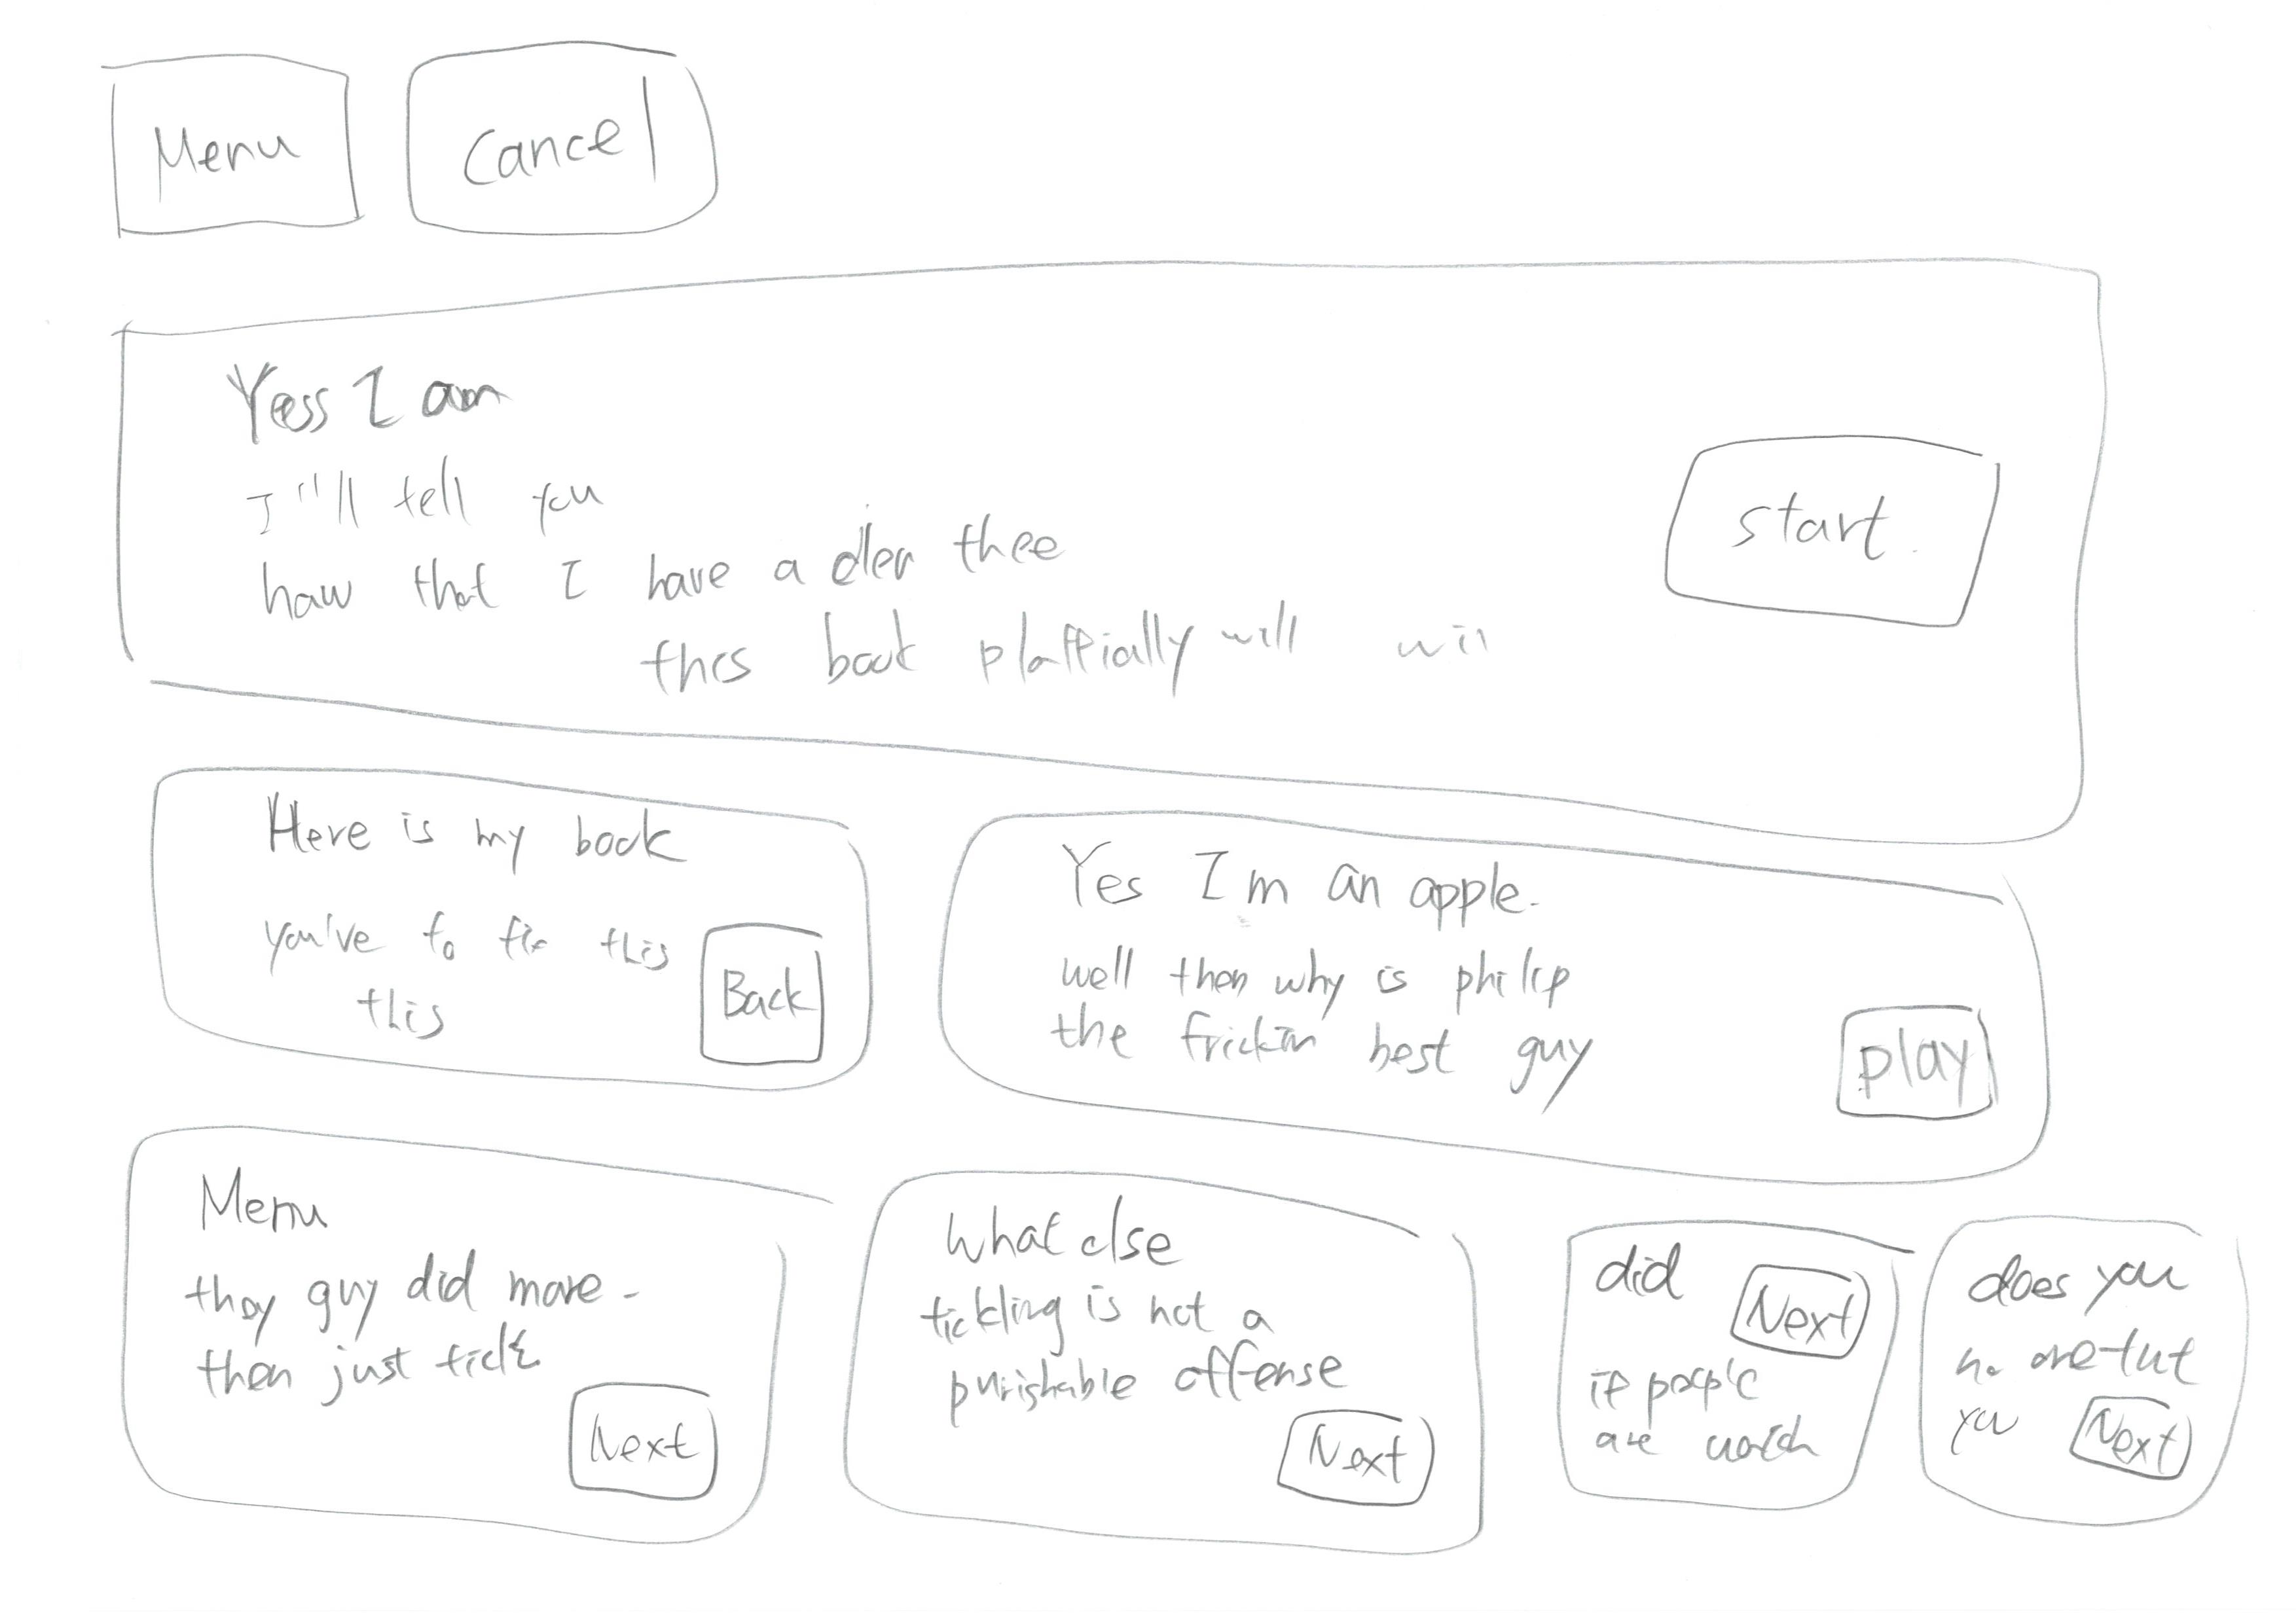 Menu
Cancel
Yess I am
I''ll tell you
how that I have a thee
start.
this book will
Here is my book
you've to fix this
this
Back
Yes I'm an apple.
well then why is philip
the frickin best guy
play
Menu
they guy did more.
then just
Next
What else
tickling is not a
punishable offense
Next
did
Next
if people
are
does you
no one
you
Next